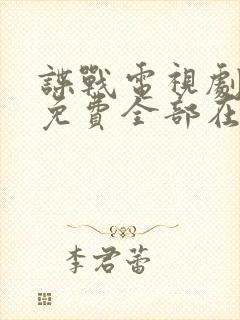 諜戰電視劇
免費全部在
李君蕾